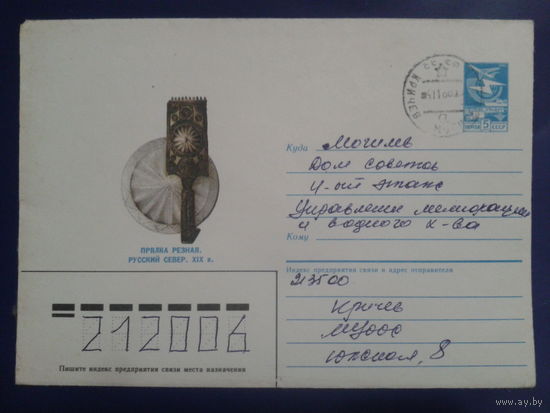 СССР
КРИЧЕВ
ПОЧТА 5 СССР
Куда Могилев
Дом советов
4-ый этаж
Управление мелиорации
и водного х-ва
Кому
ПРЯЛКА РЕЗНАЯ.
РУССКИЙ СЕВЕР. XIX в.
Индекс предприятия связи и адрес отправителя
213500
Кричев
Южная, 8
212006
Пишите индекс предприятия связи места назначения
www.ay.by